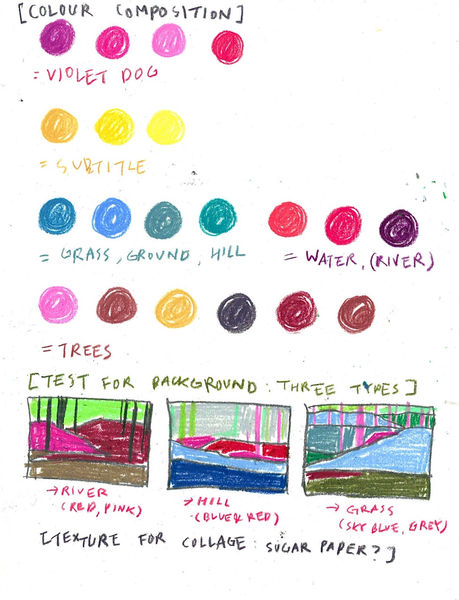 [COLOUR COMPOSITION]
= VIOLET DOG
= SUBTITLE
= GRASS, GROUND, HILL
= WATER, (RIVER)
= TREES
[TEST FOR BACKGROUND: THREE TYPES]
→ RIVER
(RED, PINK)
→ HILL
(BLUE & RED)
→ GRASS
(SKY BLUE, GREY)
[TEXTURE FOR COLLAGE: SUGAR PAPER?]